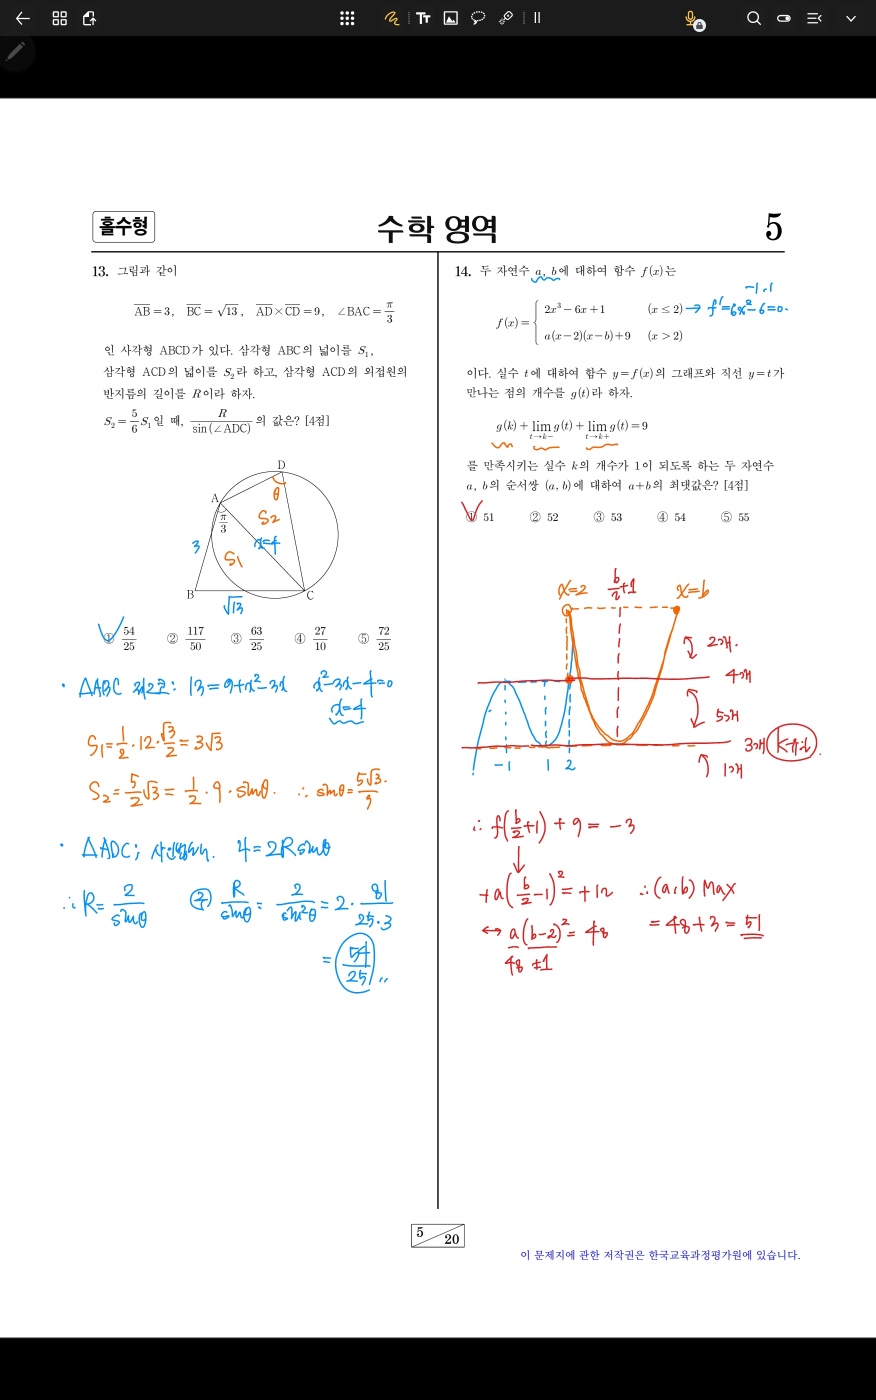 Tт
홀수형
수학 영역
5
13. 그림과 같이
AB=3, BC=√13, AD×CD=9, ∠BAC=π/3
인 사각형 ABCD가 있다. 삼각형 ABC의 넓이를 S₁,
삼각형 ACD의 넓이를 S₂라 하고, 삼각형 ACD의 외접원의
반지름의 길이를 R이라 하자.
S₂=5/6 S₁일 때, R/sin(∠ADC)의 값은? [4점]
D
A
θ
π/3
S2
3
x=4
S1
B
C
√13
① 54/25 ② 117/50 ③ 63/25 ④ 27/10 ⑤ 72/25
· △ABC 제2코: 13=9+x²-3x x²-3x-4=0
x=4
S1=1/2·12·√3/2=3√3
S2=5/2√3=1/2·9·sinθ. ∴ sinθ=5√3/9
· △ADC; 사인법칙. 4=2Rsinθ
∴R=2/sinθ R/sinθ=2/sin²θ=2·81/25·3
=54/25
14. 두 자연수 a, b에 대하여 함수 f(x)는
-1, 1
2x³-6x+1 (x≤2) → f'=6x²-6=0.
f(x)=
a(x-2)(x-b)+9 (x>2)
이다. 실수 t에 대하여 함수 y=f(x)의 그래프와 직선 y=t가
만나는 점의 개수를 g(t)라 하자.
g(k)+lim t→k- g(t)+lim t→k+ g(t)=9
를 만족시키는 실수 k의 개수가 1이 되도록 하는 두 자연수
a, b의 순서쌍 (a, b)에 대하여 a+b의 최댓값은? [4점]
① 51 ② 52 ③ 53 ④ 54 ⑤ 55
x=2 b/2+1 x=b
2개.
4개
5개
3개
-1 1 2
1개
∴ f(b/2+1)+9=-3
+a(b/2-1)²=+12 ∴(a,b) Max
↔ a(b-2)²=48 =48+3=51
48 ±1
5
20
이 문제지에 관한 저작권은 한국교육과정평가원에 있습니다.